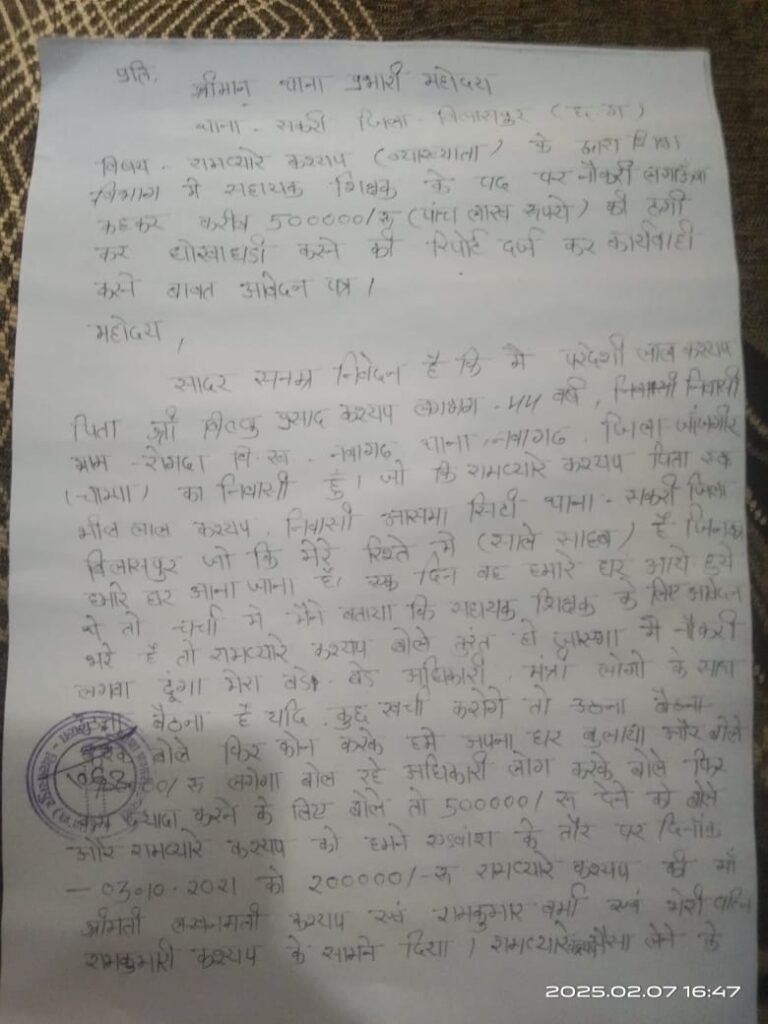 प्रति,
श्रीमान् थाना प्रभारी महोदय
थाना - सकरी जिला - बिलासपुर (छ. ग)
विषय - रामप्यारे कश्यप (व्याख्याता) के द्वारा शिक्षा
विभाग में सहायक शिक्षक के पद पर नौकरी लगाऊंगा
कहकर करीब 500000/रू (पांच लाख रूपये) की ठगी
कर धोखाधडी करने की रिपोर्ट दर्ज कर कार्यवाही
करने बाबत आवेदन पत्र ।
महोदय,
सादर सनम्र निवेदन है कि मै परदेशी लाल कश्यप
पिता श्री प्रसाद कश्यप लगभग - 44 वर्ष, निवासी निवासी
ग्राम - रोगदा वि. ख. नवागढ थाना नवागढ. जिला जांजगीर
(चाम्पा) का निवासी हूँ। जो कि रामप्यारे कश्यप पिता स्व
लाल कश्यप, निवासी आसमा सिटी थाना - सकरी जिला
बिलासपुर जो कि मेरे रिश्ते में (साले साहब) है जिनका
हमारे घर आना जाना है। एक दिन वह हमारे घर आये हुये
थे तो चर्चा में मैने बताया कि सहायक शिक्षक के लिए आवेदन
भरे है तो रामप्यारे कश्यप बोले तुरंत हो जाएगा मैं नौकरी
लगवा दूंगा मेरा बडे बडे अधिकारी, मंत्री लोगो के साथ
बैठना है यदि कुछ खर्चा करोगे तो उठना बैठना
करके बोले फिर फोन करके हमे अपना घर बुलाया और बोले
रू लगेगा बोल रहे अधिकारी लोग करके बोले फिर
करने के लिए बोले तो 500000/रू देने को बोले
और रामप्यारे कश्यप को हमने एडवांस के तौर पर दिनाँक
- 03.10.2021 को 200000/-रू रामप्यारे कश्यप की माँ
श्रीमती कश्यप एवं रामकुमार वर्मा एवं मेरी पत्नि
रामकुमारी कश्यप के सामने दिया । रामप्यारे पैसा लेने के
2025.02.07 16:47